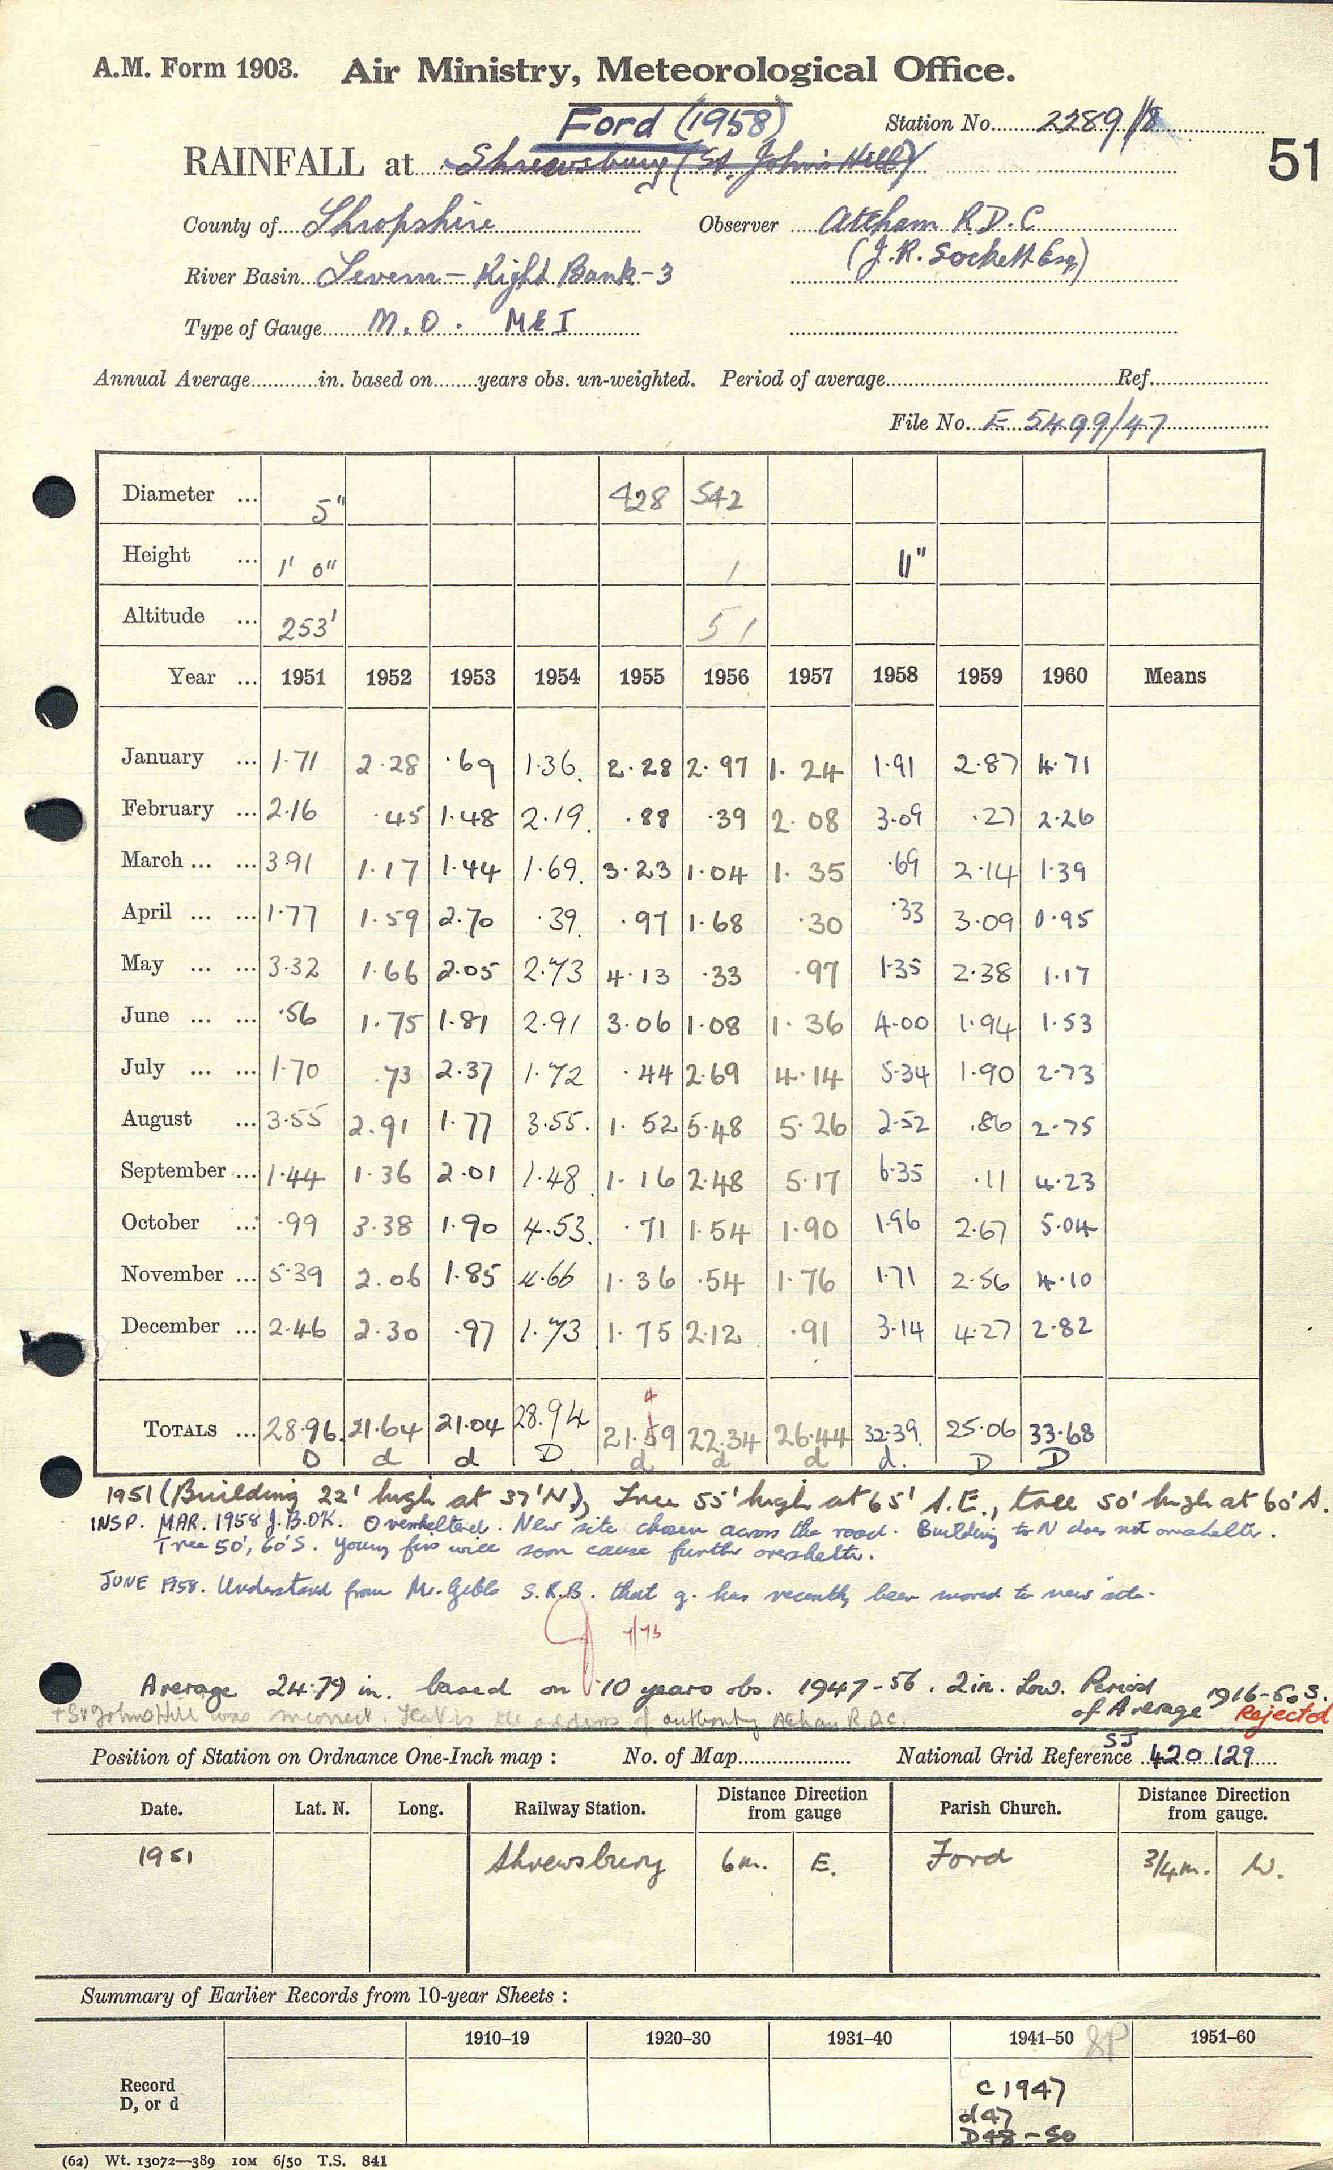 A.M. Form 1903. Air Ministry, Meteorological Office.
Ford (1958) Station No. 2289/18
RAINFALL at Shrewsbury (St. John's Hill) 51
County of Shropshire Observer Atcham R.D.C
(J.R. Sockett Esq)
River Basin Severn - Right Bank - 3
Type of Gauge M.O. MkI
Annual Average in. based on years obs. un-weighted. Period of average Ref.
File No. E 5499/47
Diameter ... 5" 428 542
Height ... 1' 0" 1 11"
Altitude ... 253' 51
Year ... 1951 1952 1953 1954 1955 1956 1957 1958 1959 1960 Means
January ... 1.71 2.28 .69 1.36 2.28 2.97 1.24 1.91 2.87 4.71
February ... 2.16 .45 1.48 2.19 .88 .39 2.08 3.09 .27 2.26
March ... ... 3.91 1.17 1.44 1.69 3.23 1.04 1.35 .69 2.14 1.39
April ... ... 1.77 1.59 2.70 .39 .97 1.68 .30 .33 3.09 0.95
May ... ... 3.32 1.66 2.05 2.73 4.13 .33 .97 1.35 2.38 1.17
June ... ... .56 1.75 1.81 2.91 3.06 1.08 1.36 4.00 1.94 1.53
July ... ... 1.70 .73 2.37 1.72 .44 2.69 4.14 5.34 1.90 2.73
August ... 3.55 2.91 1.77 3.55 1.52 5.48 5.26 2.52 .86 2.75
September ... 1.44 1.36 2.01 1.48 1.16 2.48 5.17 6.35 .11 4.23
October ... .99 3.38 1.90 4.53 .71 1.54 1.90 1.96 2.67 5.04
November ... 5.39 2.06 1.85 4.66 1.36 .54 1.76 1.71 2.56 4.10
December ... 2.46 2.30 .97 1.73 1.75 2.12 .91 3.14 4.27 2.82
4
TOTALS ... 28.96 21.64 21.04 28.94 21.59 22.34 26.44 32.39 25.06 33.68
D d d D d d d d. D D
1951 (Building 22' high at 37' N), Tree 55' high at 65' S.E., tree 50' high at 60' S.
INSP. MAR. 1958 J.B.OK. Oversheltered. New site chosen across the road. Building to N does not overshelter.
Tree 50', 60'S. Young firs will soon cause further overshelter.
JUNE 1958. Understand from Mr. S.R.B. that g. has recently been moved to new site.
Average 24.79 in. based on 10 years obs. 1947-56. 2in. Low. Period
of Average 1916-50 S.
Rejected
+ St Johns Hill was incorrect. That is the address of authority Atcham R.D.C.
Position of Station on Ordnance One-Inch map : No. of Map National Grid Reference SJ 420 129
Date. Lat. N. Long. Railway Station. Distance from Direction gauge Parish Church. Distance from Direction gauge.
1951 Shrewsbury 6m. E. Ford 3/4m. W.
Summary of Earlier Records from 10-year Sheets :
1910–19 1920–30 1931–40 1941–50 1951–60
Record
D, or d
C 1947
d47
D48-50
(62) Wt. 13072—389 10M 6/50 T.S. 841